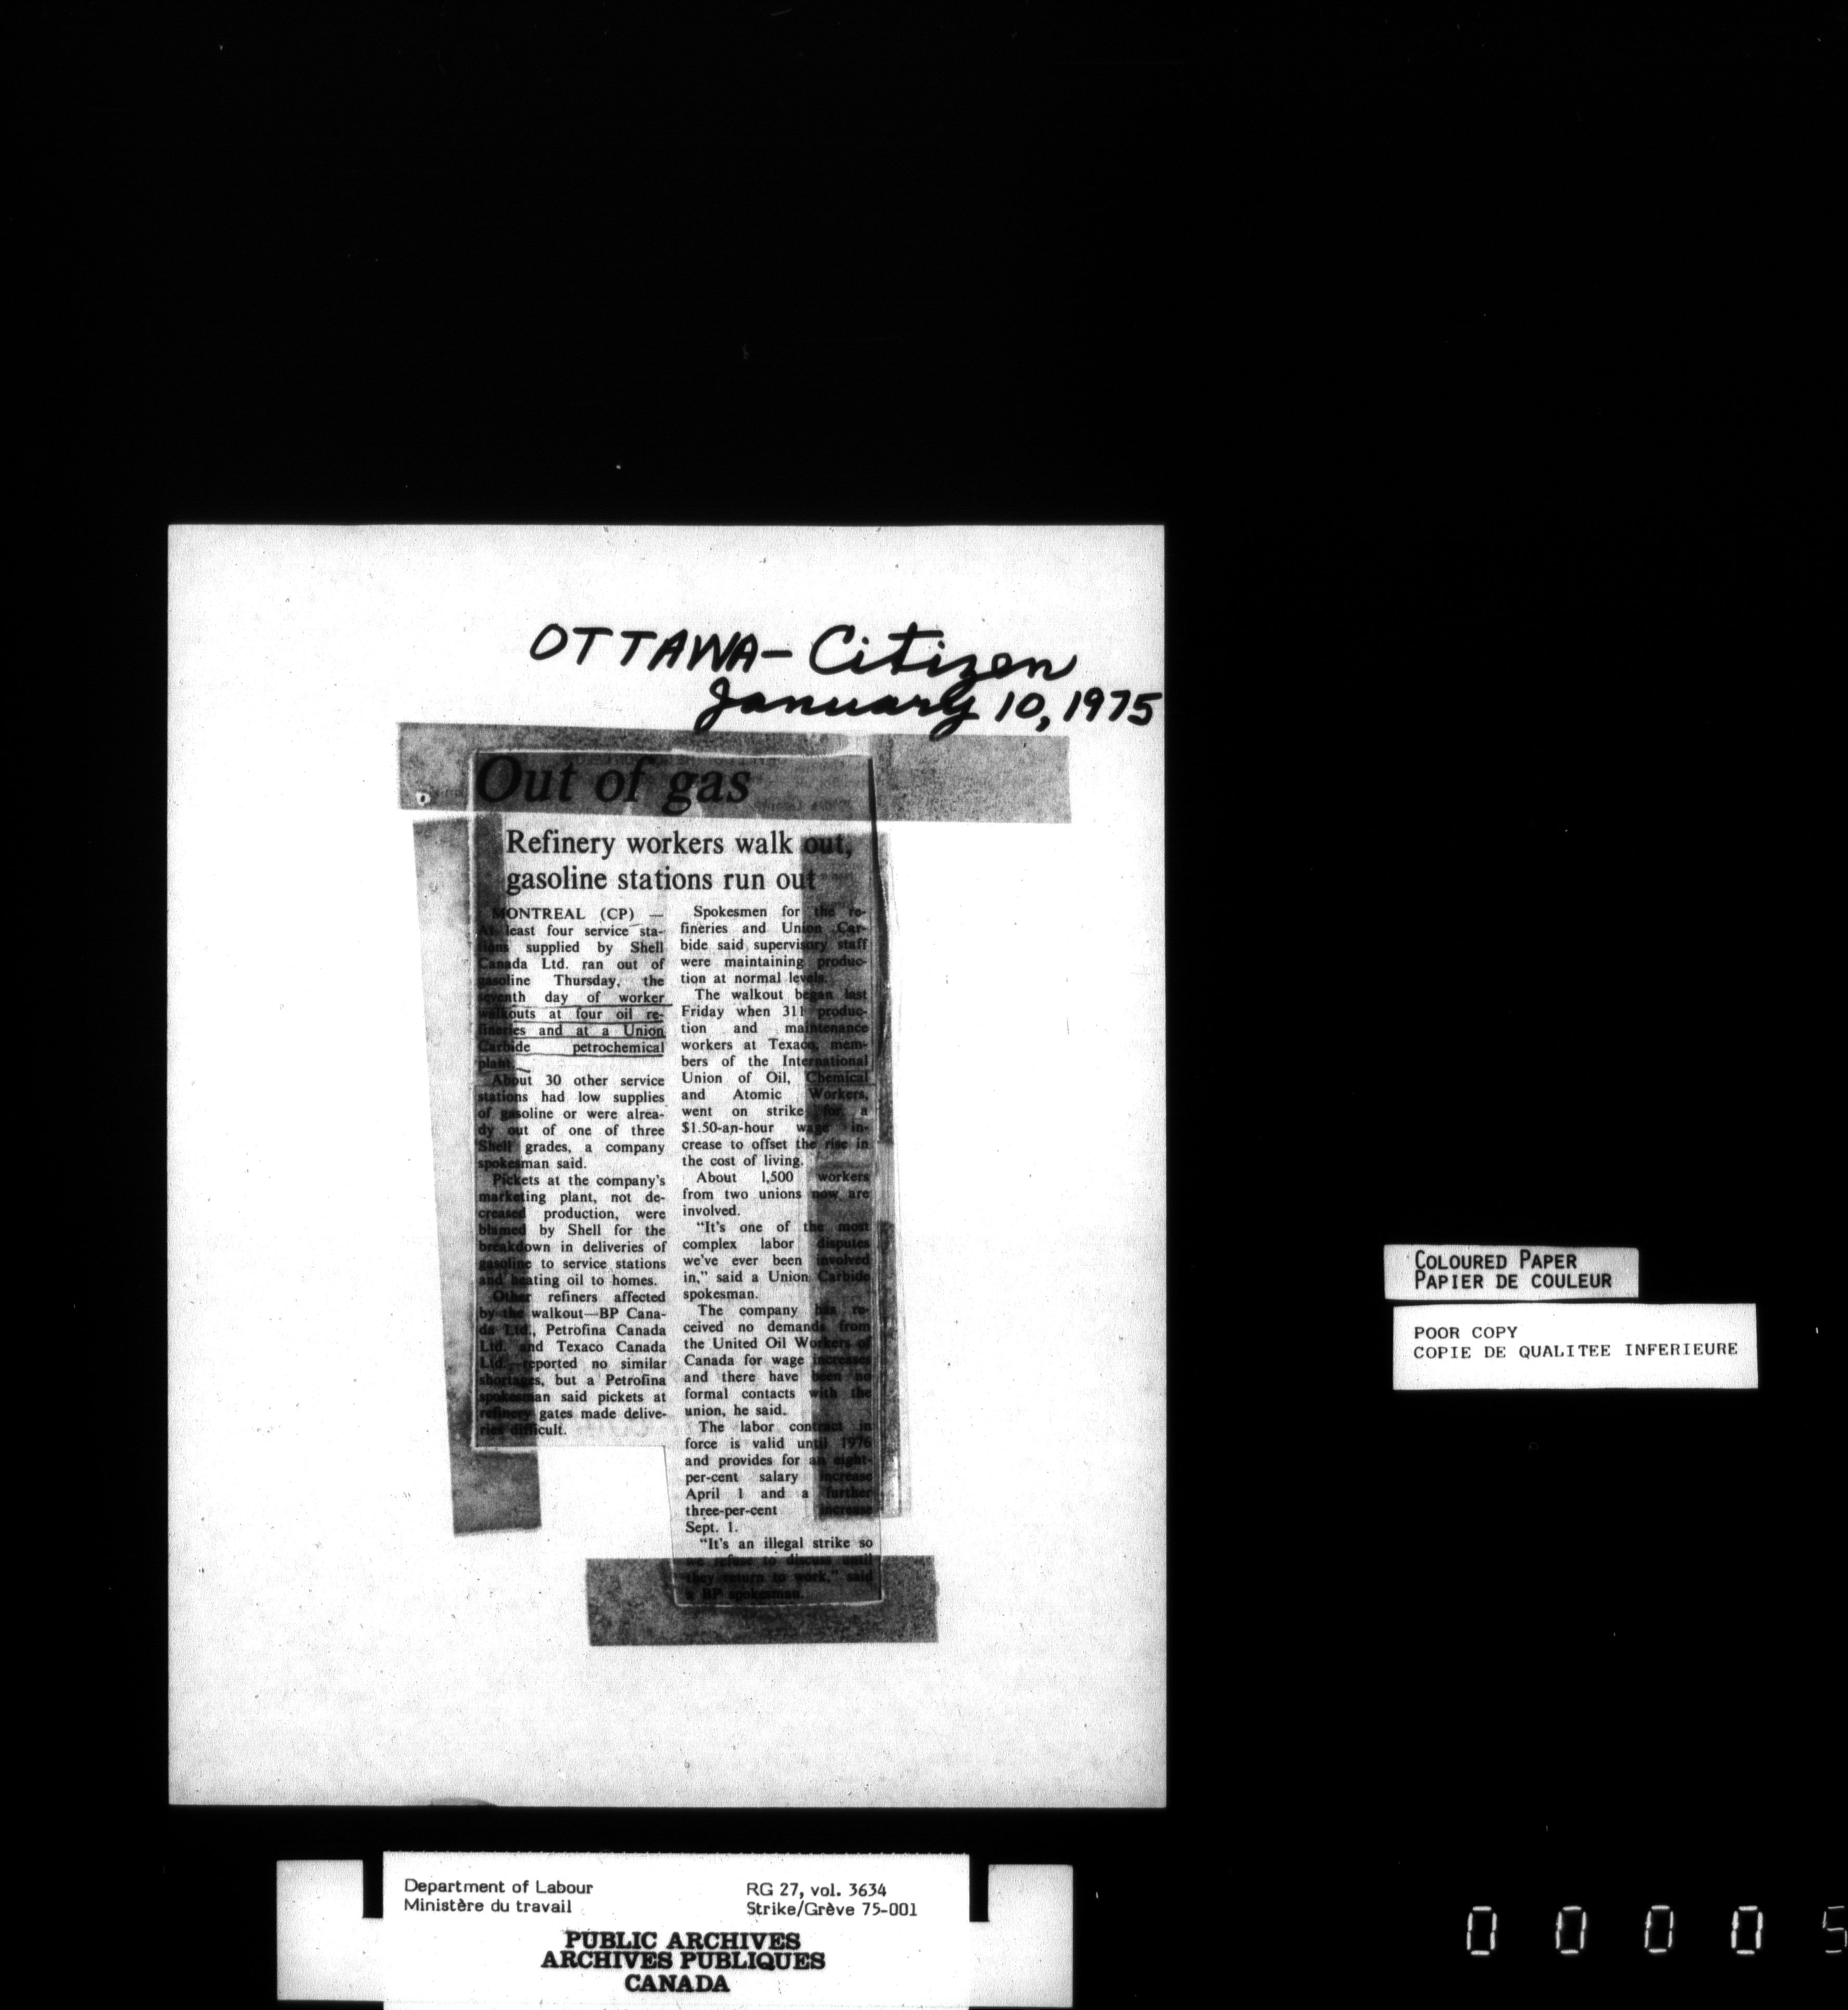 OTTAWA - Citizen
January 10, 1975
Out of gas
Refinery workers walk out,
gasoline stations run out
MONTREAL (CP) —
At least four service sta-
tions supplied by Shell
Canada Ltd. ran out of
gasoline Thursday, the
seventh day of worker
walkouts at four oil re-
fineries and at a Union
Carbide petrochemical
plant.
About 30 other service
stations had low supplies
of gasoline or were alrea-
dy out of one of three
Shell grades, a company
spokesman said.
Pickets at the company's
marketing plant, not de-
creased production, were
blamed by Shell for the
breakdown in deliveries of
gasoline to service stations
and heating oil to homes.
Other refiners affected
by the walkout—BP Cana-
da Ltd., Petrofina Canada
Ltd. and Texaco Canada
Ltd.—reported no similar
shortages, but a Petrofina
spokesman said pickets at
refinery gates made delive-
ries difficult.
Spokesmen for the re-
fineries and Union Car-
bide said supervisory staff
were maintaining produc-
tion at normal levels.
The walkout began last
Friday when 311 produc-
tion and maintenance
workers at Texaco, mem-
bers of the International
Union of Oil, Chemical
and Atomic Workers,
went on strike for a
$1.50-an-hour wage in-
crease to offset the rise in
the cost of living.
About 1,500 workers
from two unions now are
involved.
"It's one of the most
complex labor disputes
we've ever been involved
in," said a Union Carbide
spokesman.
The company has re-
ceived no demands from
the United Oil Workers of
Canada for wage increases
and there have been no
formal contacts with the
union, he said.
The labor contract in
force is valid until 1976
and provides for an eight-
per-cent salary increase
April 1 and a further
three-per-cent increase
Sept. 1.
"It's an illegal strike so
we refuse to discuss until
they return to work," said
a BP spokesman.
COLOURED PAPER
PAPIER DE COULEUR
POOR COPY
COPIE DE QUALITEE INFERIEURE
Department of Labour
Ministère du travail
RG 27, vol. 3634
Strike/Grève 75-001
PUBLIC ARCHIVES
ARCHIVES PUBLIQUES
CANADA
0 0 0 0 5